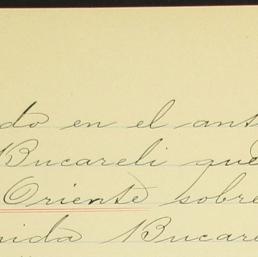 do en el ant
Bucareli que
Oriente sobre
nida Bucare